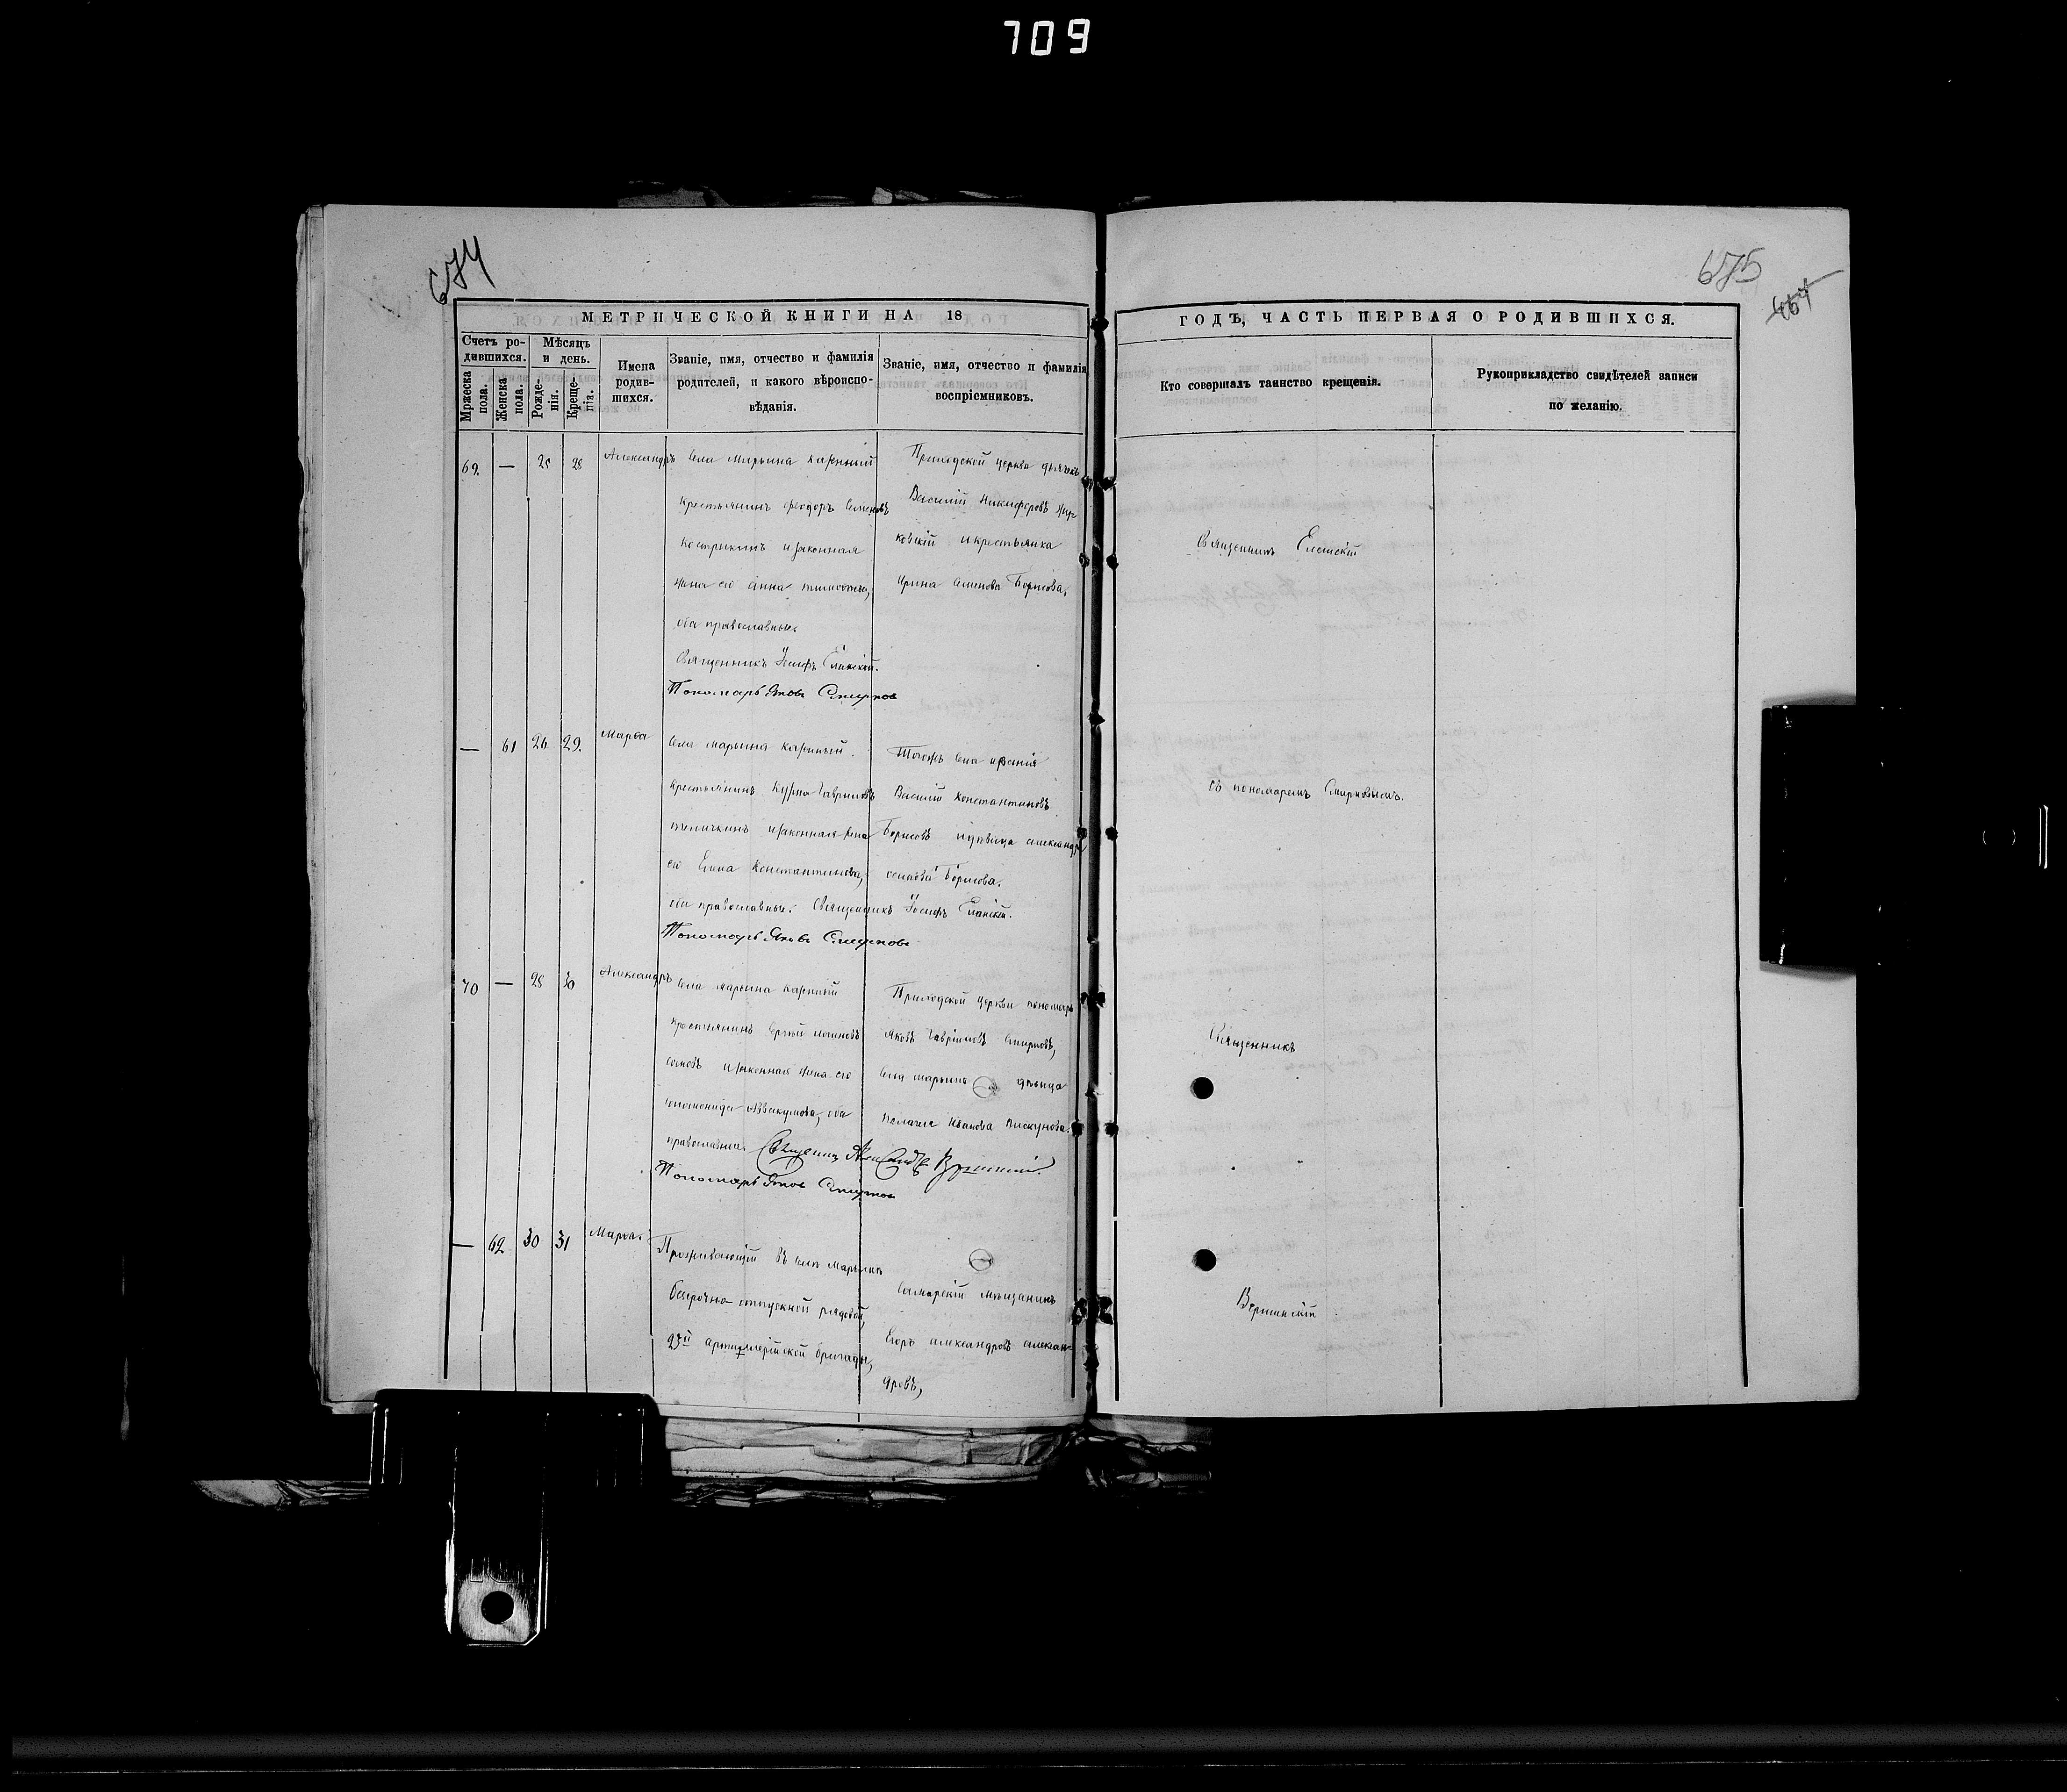 709
674
675
667
МЕТРИЧЕСКОЙ КНИГИ НА 18
ГОДЪ, ЧАСТЬ ПЕРВАЯ О РОДИВШИХСЯ.
Счетъ ро-
дившихся.
Мѣсяцъ
и день.
Мржеска
пола.
Женска
пола.
Рожде-
нія.
Креще-
нія.
Имена
родив-
шихся.
Званіе, имя, отчество и фамилія
родителей, и какого вѣроиспо-
вѣданія.
Званіе, имя, отчество и фамилія
воспріемниковъ.
Кто совершалъ таинство крещенія.
Рукоприкладство свидѣтелей записи
по желанію.
69. — 25 28 Александръ
Села Марьина казенный
крестьянинъ Феодоръ Семеновъ
и законная
жена его Анна
оба православные.
Священникъ Іосифъ Еланскій.
Пономарь Яковъ Смирновъ
Приходской церкви дьячекъ
Василій Никифоровъ
ковскій и крестьянка
Ирина Семенова Борисова.
Священникъ Еланскій
— 61 26 29. Марѳа
Села Марьина казенный
крестьянинъ Кузма Гавриловъ
и законная жена
его Елена Константинова,
оба православные. Священникъ Іосифъ Еланскій.
Пономарь Яковъ Смирновъ
Тогожъ села
Василій Константиновъ
Борисовъ и дѣвица Александра
Борисова.
съ пономаремъ Смирновымъ.
70 — 28 30 Александръ
Села Марьина казенный
крестьянинъ
и законная жена его
Аввакумова, оба
православные. Священникъ Александръ Вершинскій.
Пономарь Яковъ Смирновъ
Приходской церкви пономарь
Яковъ Гавріиловъ Смирновъ,
села Марьина дѣвица
Пелагія Иванова Пискунова.
Священникъ
— 62 30 31 Марѳа.
Проживающій въ селѣ Марьинѣ
безсрочно-отпускной рядовой,
23й артиллерійской бригады,
Самарскій мѣщанинъ
Егоръ Александровъ Алексан-
дровъ,
Вершинскій